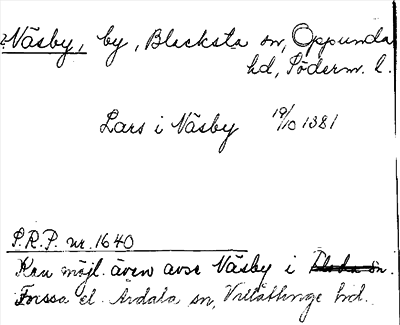 ?Näsby, by, Blacksta sn, Oppunda
hd, Söderm. l.
Lars i Näsby 19/10 1381
S.R.P. nr. 1640
Kan möjl. även avse Näsby i Floda sn.
Forssa el. Årdala sn, Villåttinge hd.